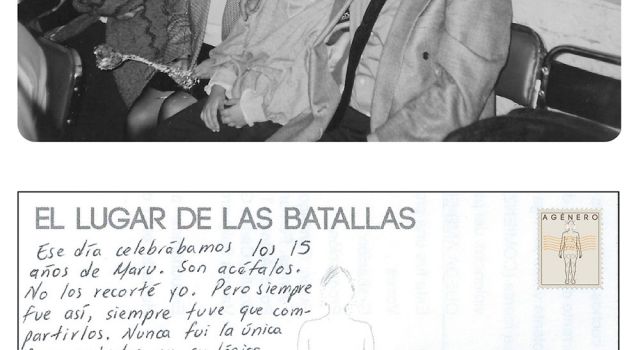 EL LUGAR DE LAS BATALLAS
AGÉNERO
Ese día celebrábamos los 15
años de Maru. Son acéfalos.
No los recorté yo. Pero siempre
fue así, siempre tuve que com-
partirlos. Nunca fui la única